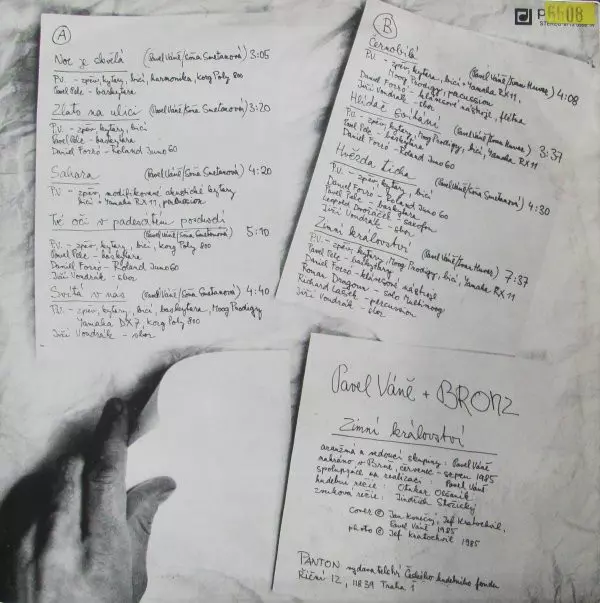 A
Noc je skvělá (Pavel Váně/Soňa Smetanová) 3:05
P.V. - zpěv, kytary, bicí, harmonika, Korg Poly 800
Pavel Pele - baskytara
Zlato na ulici (Pavel Váně/Soňa Smetanová) 3:20
P.V. - zpěv, kytary, bicí
Pavel Pele - baskytara
Daniel Forró - Roland Juno 60
Sahara (Pavel Váně/Soňa Smetanová) 4:20
P.V. - zpěv, modifikované akustické kytary
bicí + Yamaha RX 11, percussion
Tvé oči v padesátém poschodí
(Pavel Váně/Soňa Smetanová) 5:10
P.V. - zpěv, kytary, bicí, Korg Poly 800
Pavel Pele - baskytara
Daniel Forró - Roland Juno 60
Jiří Vondrák - sbor
Světá v nás (Pavel Váně/Soňa Smetanová) 4:40
P.V. - zpěv, kytary, bicí, baskytara, Moog Prodigy
Yamaha DX7, Korg Poly 800
Jiří Vondrák - sbor
B
6608
Černobílá (Pavel Váně/Soňa) 4:08
P.V. - zpěv, kytara, bicí + Yamaha RX 11,
Moog Prodigy, percussion
Daniel Forró - klávesové nástroje, flétna
Jiří Vondrák - sbor
(Pavel Váně/) 3:37
P.V. - zpěv, kytary, Moog Prodigy, bicí, Yamaha RX 11
Pavel Pele - baskytara
Daniel Forró - Roland Juno 60
Hvězda tichá (Pavel Váně/Soňa Smetanová) 4:30
P.V. - zpěv, kytary, bicí
Daniel Forró - Roland Juno 60
Pavel Pele - baskytara
Leopold Dvořáček - saxofon
Jiří Vondrák - sbor
Zimní království (Pavel Váně/) 7:37
P.V. - zpěv, kytary, Moog Prodigy, bicí, Yamaha RX 11
Pavel Pele - baskytary
Daniel Forró - klávesové nástroje
Roman Dragoun - solo Multimoog
Richard Lašek - percussion
Jiří Vondrák - sbor
Pavel Váně + BRONZ
Zimní království
aranžmá a vedoucí skupiny: Pavel Váně
nahráno v Brně, červenec - srpen 1985
spolupráce na realizaci: Pavel Váně
hudební režie: Otakar Olšaník
zvuková režie: Jindřich
cover © Jan Konečný, Jef Kratochvil,
Pavel Váně 1985
photo © Jef Kratochvil 1985
PANTON vydavatelství Českého hudebního fondu
Říční 12, 11839 Praha 1